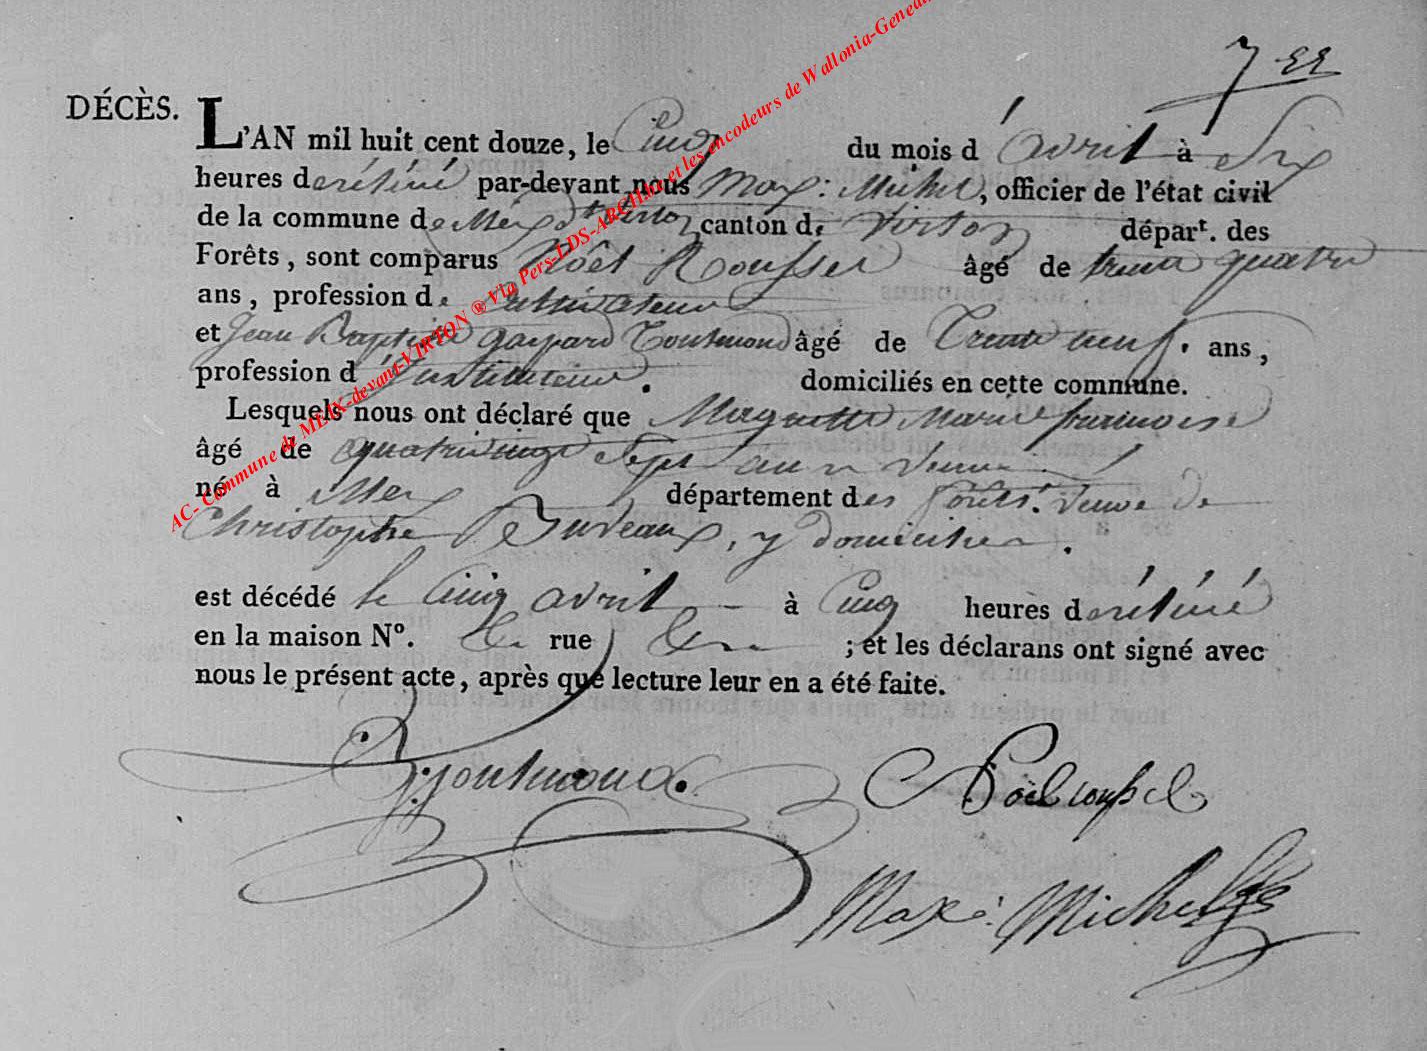 7 ee
DÉCÈS. L'AN mil huit cent douze, le Cinq du mois d'avril à Six
heures de rélévé par-devant nous Max: Michel, officier de l'état civil
de la commune de Meix dt Virton canton de Virton départ. des
Forêts, sont comparus Noël Roussel âgé de trente quatre
ans, profession de Cultivateur
et Jean Baptiste gaspard Toutmond âgé de Trente neuf. ans,
profession d'Instituteur. domiciliés en cette commune.
Lesquels nous ont déclaré que Maguette Marie francoise
âgé de quatrevingt Sept ans Veuve
né à Meix département des forêts. Veuve de
Christophe Bureaux, y domiciliée.
est décédé le Cinq avril à Cinq heures de rélévé
en la maison No. rue ; et les déclarans ont signé avec
nous le présent acte, après que lecture leur en a été faite.
J: g toutmond. Noël roussel
Max: Michel
AC- Commune de MEIX-devant-VIRTON ® Via Pers-LDS-ARCHives et les encodeurs de Wallonia-Geneal